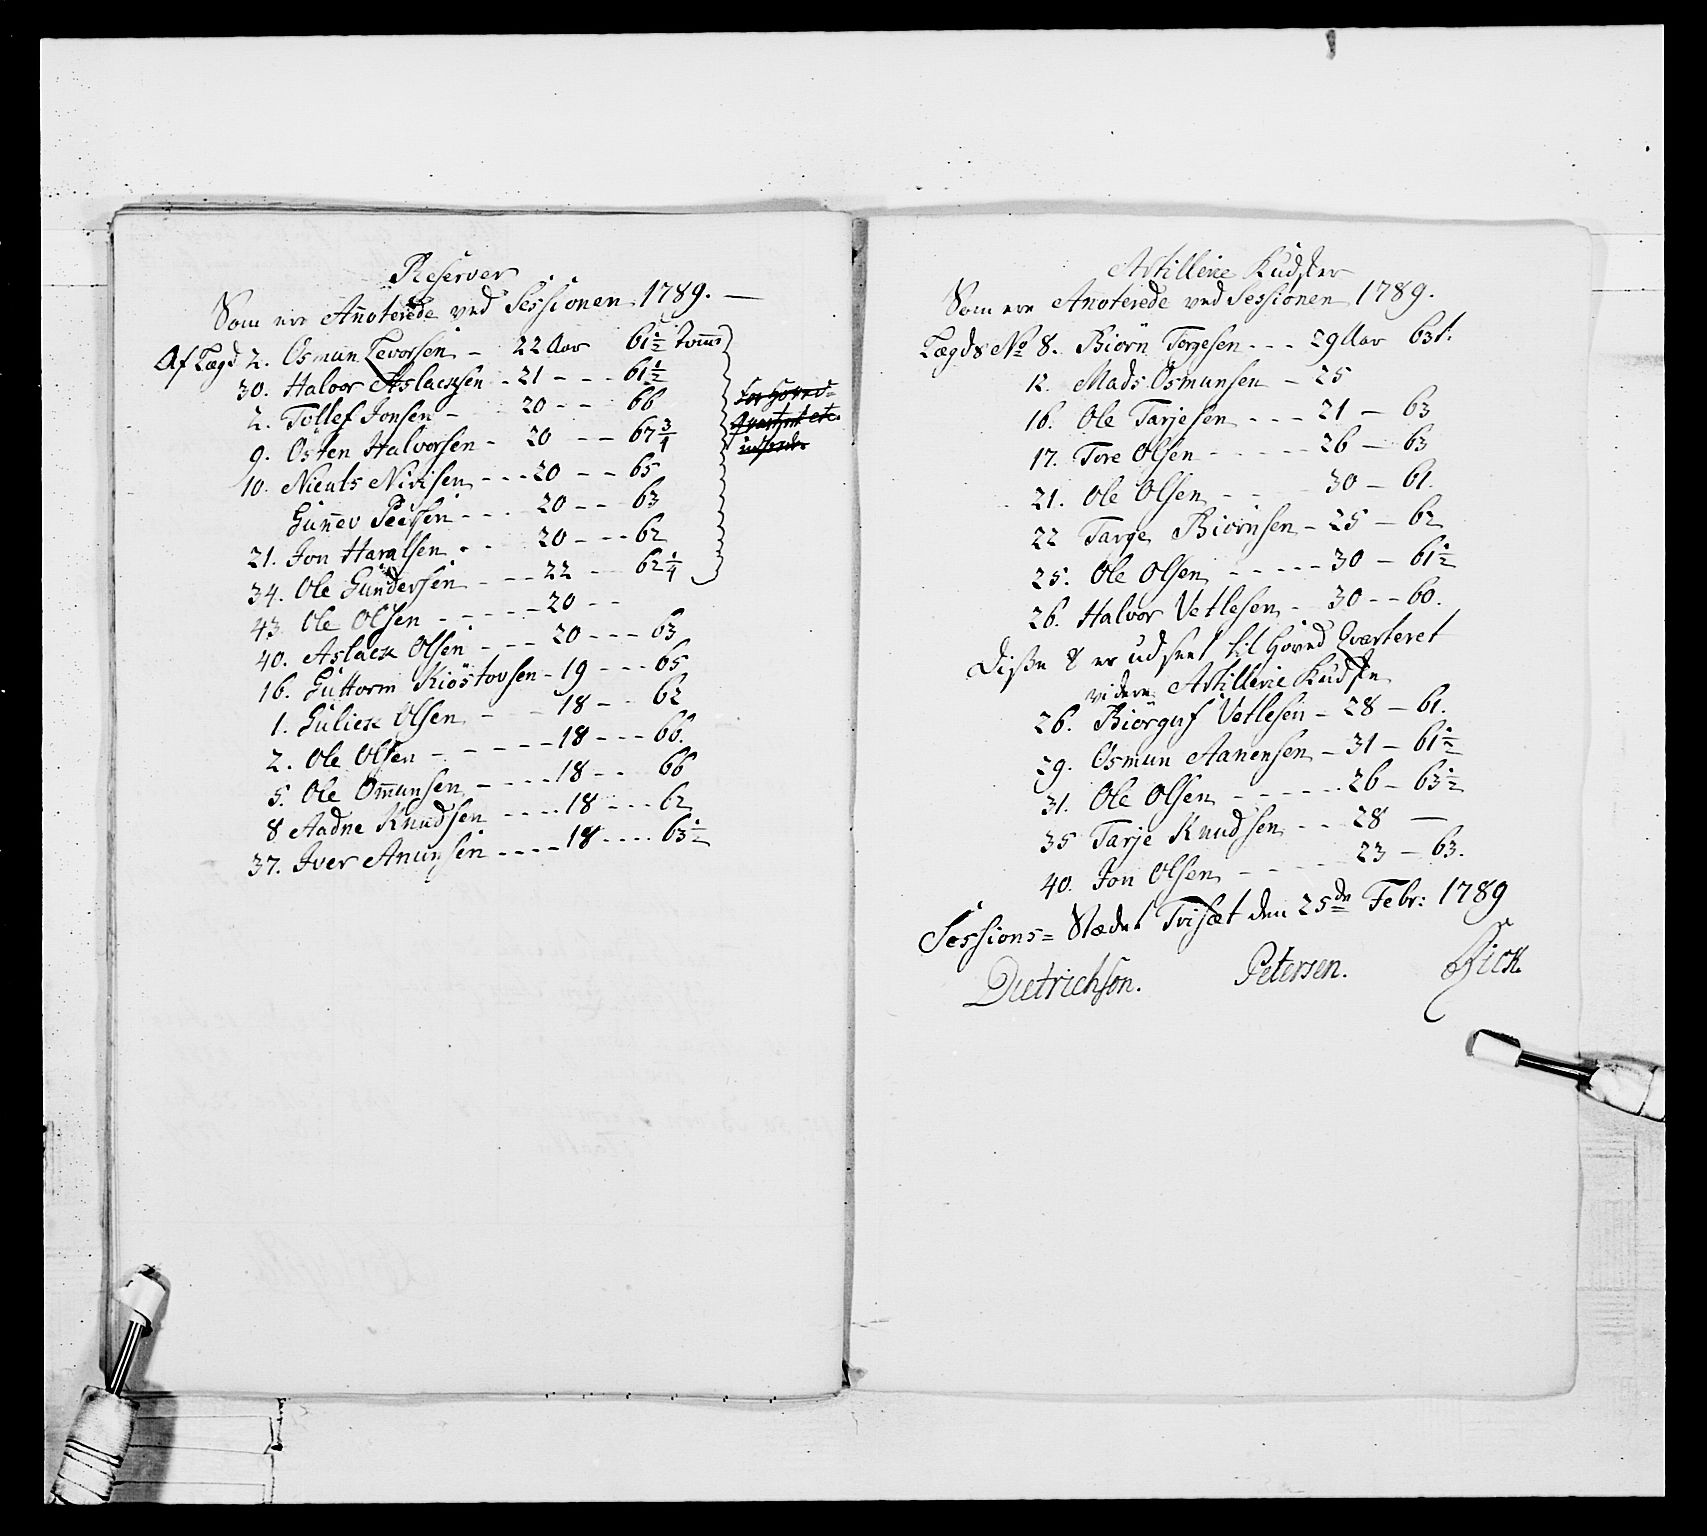 Reserver
Som ere Annoterede ved Sessionen 1789. —
Af Lægd 2. Osmun Levorsen - 22 Aar 61 1/2 Tomm
30. Halvor Aslacksen - 21 - - - 61 1/2
2. Tollef Jonsen - 20 - - 66
9. Osten Halvorsen - 20 - - 67 3/4
10. Nieuls Nirisen - - - 20 - - 65
Gunner - - - 20 - - 63
21. Jon Haralsen - - 20 - - - 62
34. Ole Gundersen - - - 22 - - 62 1/4
For Hoved=
Qvarteret etc.
43. Ole Olsen - - - - - 20 - -
40. Aslack Olsen - - - 20 - - - 63
16. Guttorm Kiöstovsen - 19 - - - 65
1. Gulick Olsen - - 18 - - 62
2. Ole Olsen - - - - - 18 - - - 66.
5. Ole Omunsen - - - - 18 - - 66
8 Aadne Knudsen - - - - 18 - - - 62
37. Iver Anunsen - - - - 18 - - - - 63 1/2
Artillerie Kudsker
Som ere Annoterede ved Sessionen 1789.
Lægds No 8. Biörn Torgesen - - - 29 Aar 63 t.
12. Mads Osmunsen - 25
16. Ole Tarjesen - - - 21 — 63
17. Tore Olsen - - - - - 26 — 63
21. Ole Olsen - - 30 — 61.
22 Targe Biörnsen - 25 — 62
25. Ole Olsen - - - - - 30 — 61 1/2
26. Halvor Vetlesen - 30 - - 60.
Disse 8 er udseet til Hoved Qvarteret
videre Artillerie Kudske
26. Biörguf Vetlesen - 28 — 61.
29. Osmun Aanensen - 31 — 61 1/2
31. Ole Olsen - - - - - - 26 — 63 1/2
35 Tarje Knudsen - - 28 —
40. Jon Olsen - - - - 23 — 63.
Sessions= Stædet Trisæt den 25de Febr: 1789
Dietrichson. Petersen. Fick